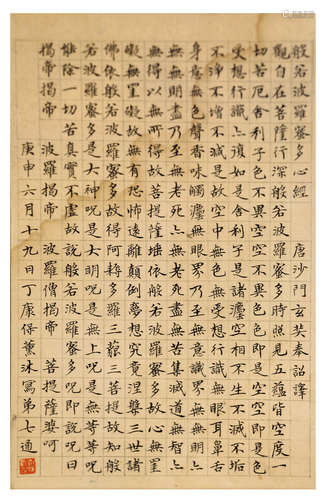 般若波羅蜜多心經 唐沙門玄奘奉詔譯
觀自在菩薩行深般若波羅蜜多時照見五蘊皆空度一
切苦厄舍利子色不異空空不異色色即是空空即是色
受想行識亦復如是舍利子是諸灋空相不生不滅不垢
不淨不增不減是故空中無色無受想行識無眼耳鼻舌
身意無色聲香味觸灋無眼界乃至無意識界無無明亦
無無明盡乃至無老死亦無老死盡無苦集滅道無智亦
無得以無所得故菩提薩埵依般若波羅蜜多故心無罣
礙無罣礙故無有恐怖遠離顛倒夢想究竟涅槃三世諸
佛依般若波羅蜜多故得阿耨多羅三藐三菩提故知般
若波羅蜜多是大神呪是大明呪是無上呪是無等等呪
能除一切苦真實不虛故說般若波羅蜜多呪即說呪曰
揭帝揭帝 波羅揭帝 波羅僧揭帝 菩提薩婆呵
庚申六月十九日丁康保薰沐寫弟七通